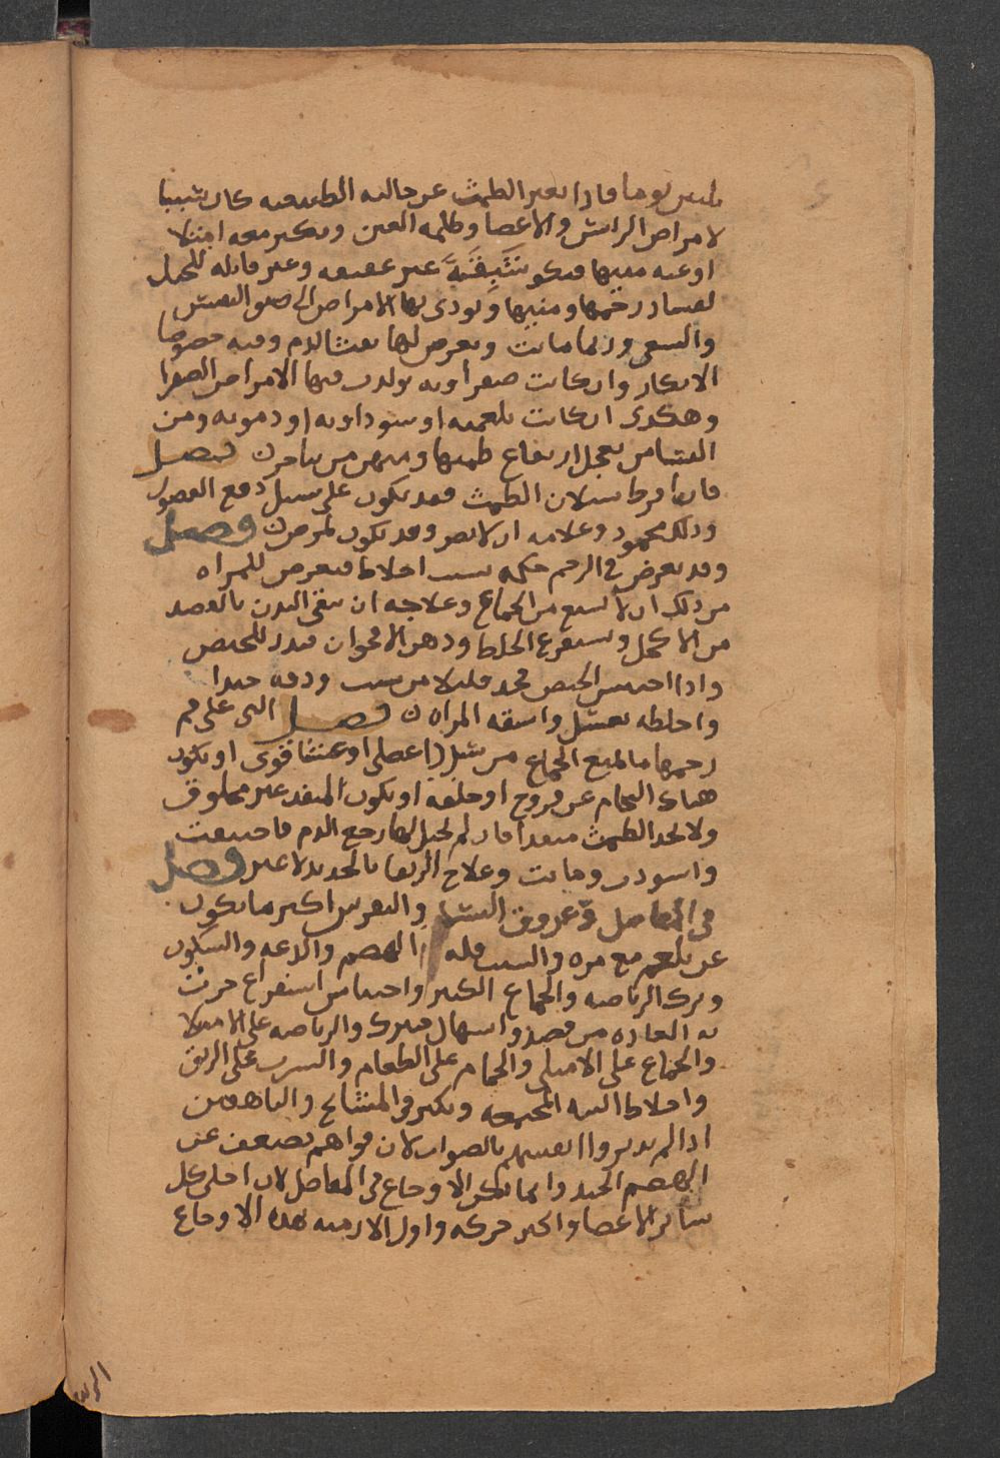 يوما فاذا تغير الطمث عن حالته الطبيعيه كان سببا
لامراض الراس والاعضا وظلمه العين ويكثر معه امتلا
اوعيه منيها فيكون غير عفيفه وغير قابله للحبل
لفساد رحمها ومنيها ويودى بها الامراض الى ضيق النفس
والسعى وربما ماتت ويعرض لها نفث الدم وقيه خصوصا
الابكار وان كانت صفراويه تولدت فيها الامراض الصفرا
وهكذى ان كانت بلغميه او سوداويه او دمويه ومن
النسا من يعجل ارتفاع طمثها ومنهن من يتاخرن فصل
فان افرط سيلان الطمث فقد يكون على سبيل دفع الفضول
وذلك محمود وعلامه ان لا يضر وقد يكون لمرض ن فصل
وقد يعرض في الرحم حكه بسبب اخلاط فيعرض للمراه
من ذلك ان لا تشبع من الجماع وعلاجه ان ينقى البدن بالفصد
من الاكحل ويستفرغ الخلط ودهن الاقحوان مدر للحيض
واذا احتبس الحيض فخذ ودقه جيدا
واخلطه بعسل واسقه المراه ن فصل التى على فم
رحمها ما يمنع الجماع من شى عضلى او غشا قوى او يكون
هناك التحام عن قروح او خلقه او يكون المنفذ غير مخلوق
ولا يجد الطمث منفذا فان لم يحتل لها رجع الدم فاختنقت
واسودت وماتت وعلاج الرتقا بالحديد لا غير فصل
فى المفاصل وعروق النسا والنقرس اكثر ما يكون
عن بلغم مع مره والسبب قله الهضم والدعه والسكون
وترك الرياضه والجماع الكثير واحتباس استفراغ جرت
به العاده من فصد واسهال فيترك والرياضه على الامتلا
والجماع على الامتلى والحمام على الطعام والشرب على الريق
واخلاط النيه المجتمعه ويكثر فى المشايخ والناقهين
اذا لم يدبروا انفسهم بالصواب لان قواهم تضعف عن
الهضم الجيد وانما تكثر الاوجاع فى المفاصل لانها اخلى من كل
ساير الاعضا واكثر حركه واولى الازمنه بهذه الاوجاع